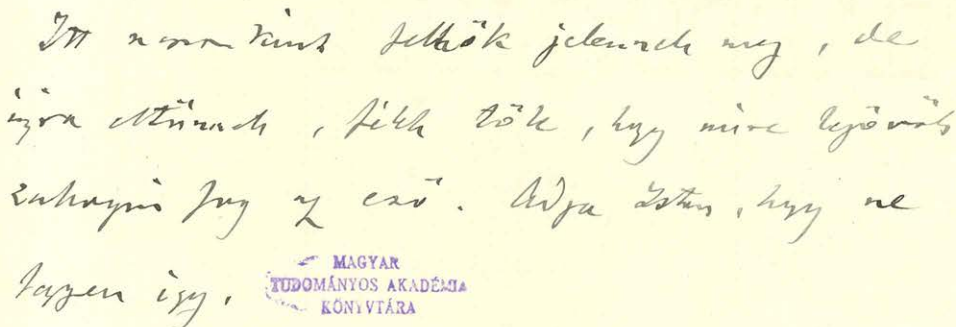 Itt naponkint felhők jelennek meg, de
újra eltűnnek, félek tőle, hogy mire lejövök
zuhogni fog az eső. Adja Isten, hogy ne
legyen így.
MAGYAR
TUDOMÁNYOS AKADÉMIA
KÖNYVTÁRA